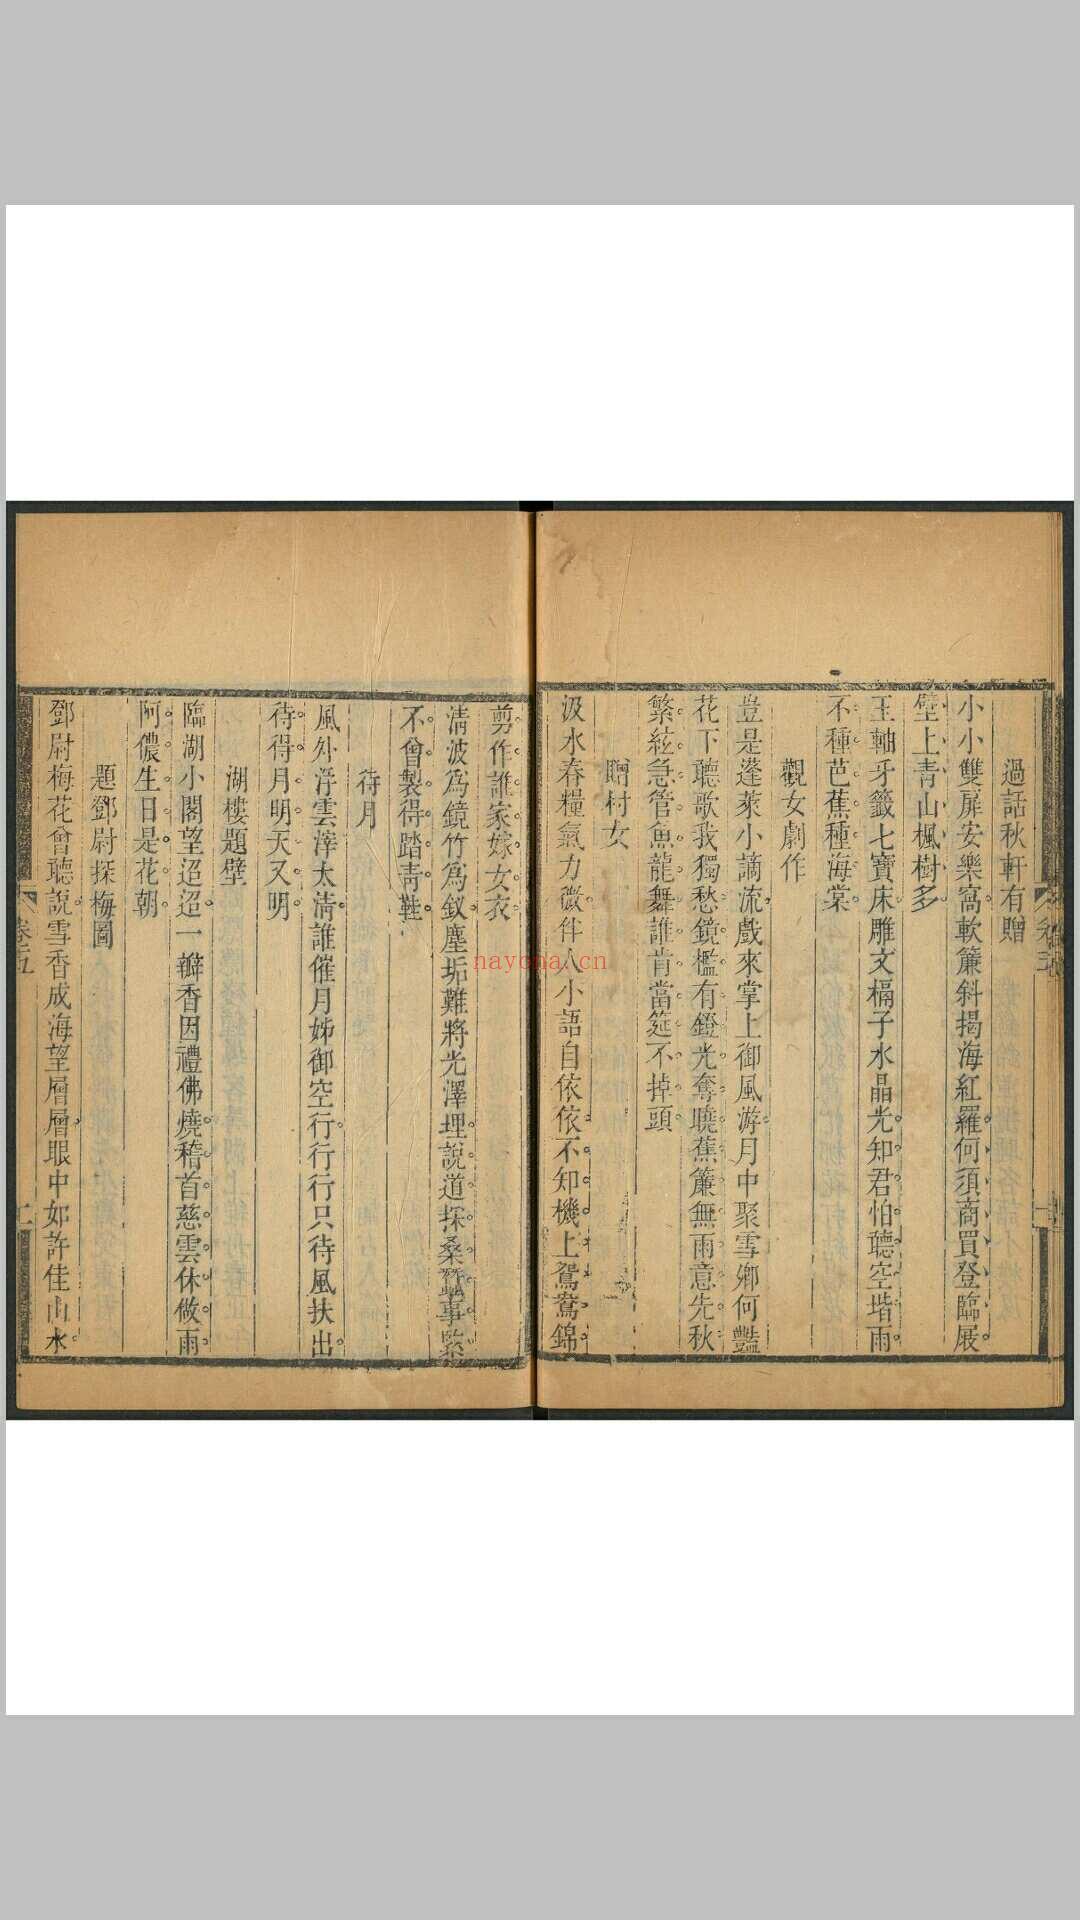 過話秋軒有贈
小小雙扉安樂窩軟簾斜揭海紅羅何須商買登臨展
壁上青山楓樹多
玉軸牙籤七寶床雕文槅子水晶光知君怕聽空堦雨
不種芭蕉種海棠
觀女劇作
豈是蓬萊小謫流戲來掌上御風游月中聚雪鄉何豔
花下聽歌我獨愁鏡檻有鐙光奪曉蕉簾無雨意先秋
繁絃急管魚龍舞誰肯當筵不掉頭
贈村女
汲水舂糧氣力微伴人小語自依依不知機上鴛鴦錦
剪作誰家嫁女衣
淸波爲鏡竹爲釵塵垢難將光澤埋說道採桑蠶事緊
不曾製得踏靑鞋
待月
風外浮雲滓太淸誰催月姊御空行行行只待風扶出
待得月明天又明
湖樓題壁
臨湖小閣望迢迢一瓣香因禮佛燒稽首慈雲休做雨
阿儂生日是花朝
題鄧尉探梅圖
鄧尉梅花曾聽說雪香成海望層層眼中如許佳山水
卷五
二
nayona.cn